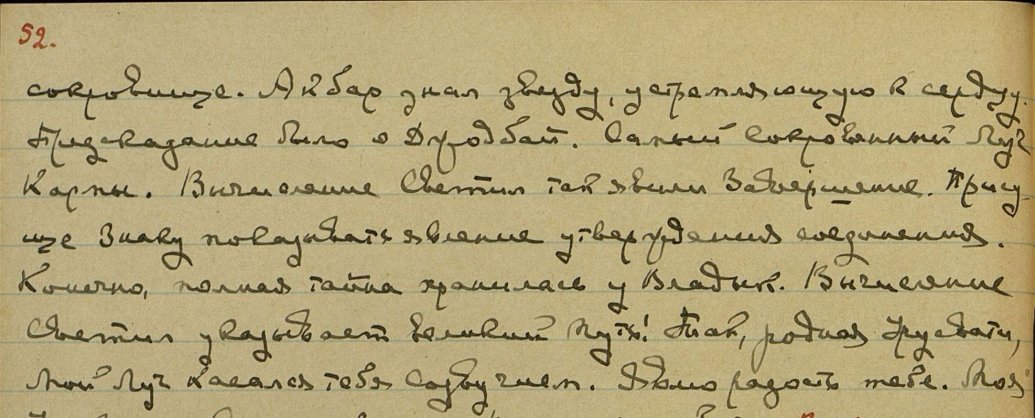 52.
сокровище. Акбар знал звезду, устремляющую к сердцу.
Предсказание было о Джодбай. Самый Сокровенный Луч
Кармы. Вычисление Светил так явили Завершение. Прису-
ще Знаку показывать явление утверждения соединения.
Конечно, полная тайна хранилась у Владык. Вычисление
Светил указывает великий путь! Так, родная Урусвати,
Мой Луч касался тебя созвучием. Явно радость тебе. Моя